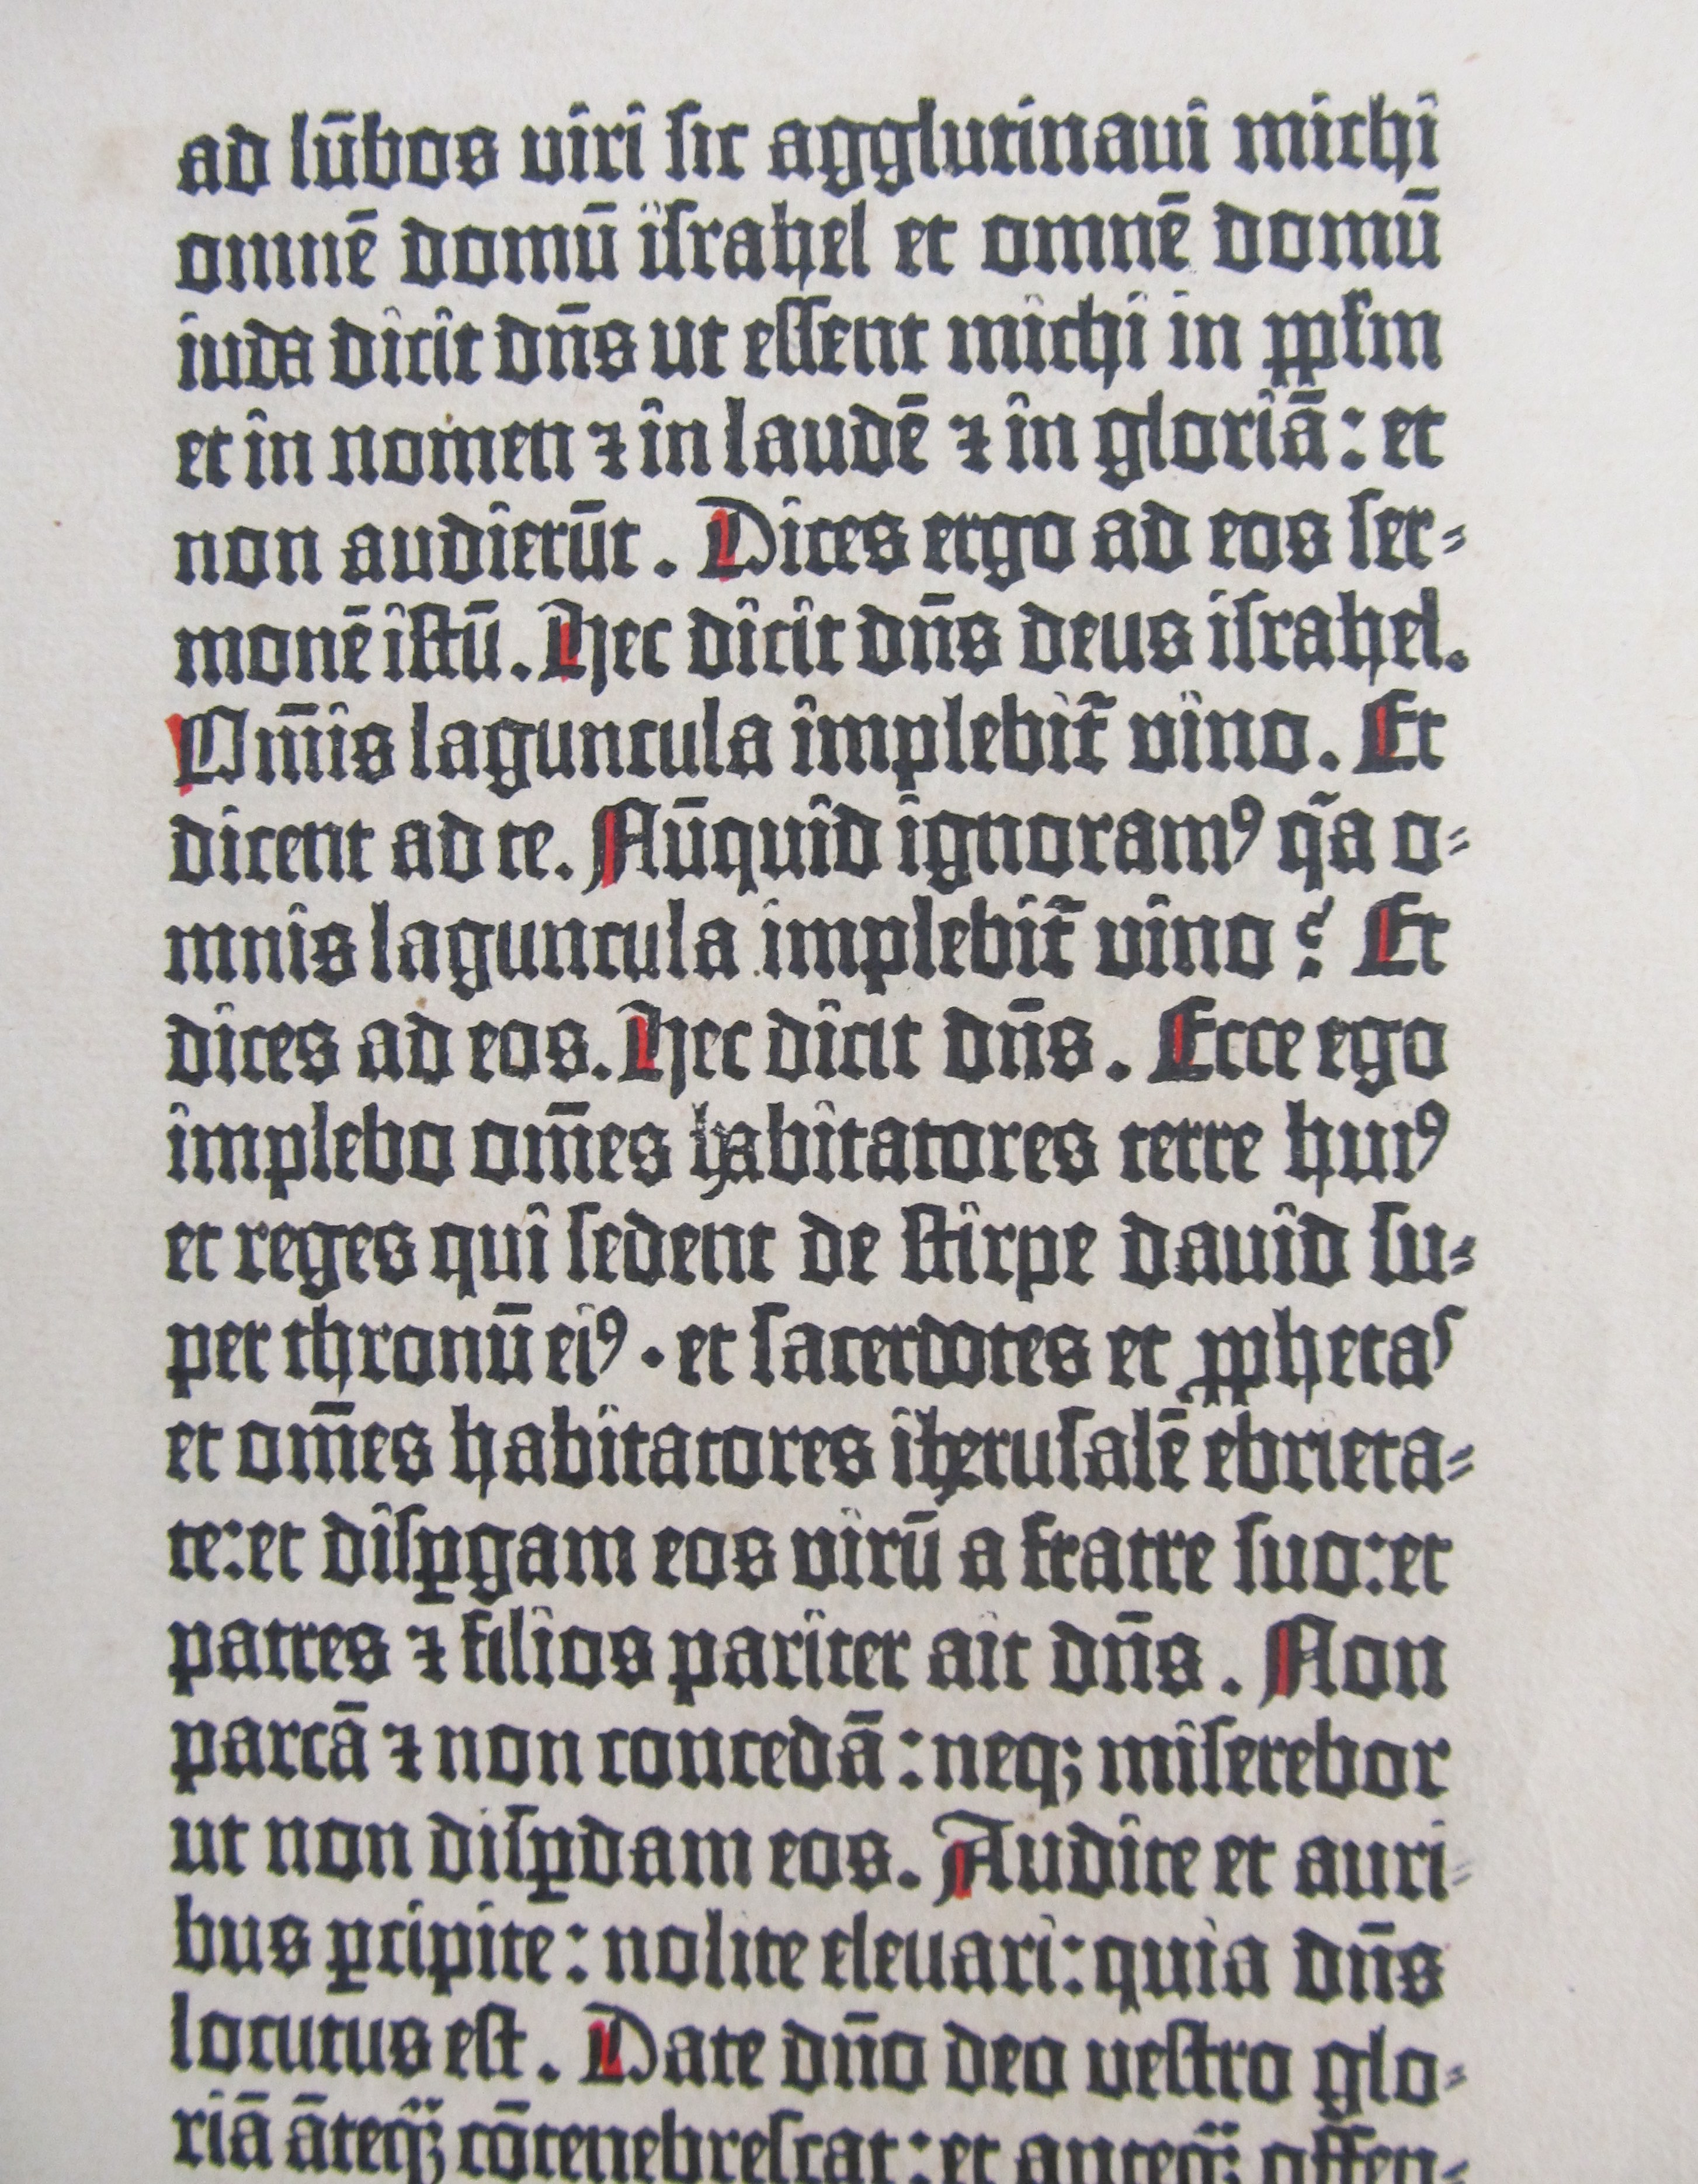 ad lūbos viri sic agglutinaui michi
omnē domū israhel et omnē domū
iuda dicit dn̄s ut essent michi in pplm
et in nomen ⁊ in laudē ⁊ in gloriā: et
non audierūt. Dices ergo ad eos ser-
monē istū. Hec dicit dn̄s deus israhel.
Om̄is laguncula implebit᷑ vino. Et
dicent ad te. Nūquid ignoramꝰ q̄a o-
mnis laguncula implebit᷑ vino? Et
dices ad eos. Hec dicit dn̄s. Ecce ego
implebo om̄es habitatores terre huiꝰ
et reges qui sedent de stirpe dauid su-
per thronū eiꝰ. et sacerdotes et ꝓphetas
et om̄es habitatores iherusalē ebrieta-
te: et disꝑgam eos virū a fratre suo: et
patres ⁊ filios pariter ait dn̄s. Non
parcā ⁊ non concedā: neqꝫ miserebor
ut non disꝑdam eos. Audite et auri-
bus ꝑcipite: nolite eleuari: quia dn̄s
locutus est. Date dn̄o deo vestro glo-
riā āteqꝫ cōtenebrescat: et anteqꝫ offen-